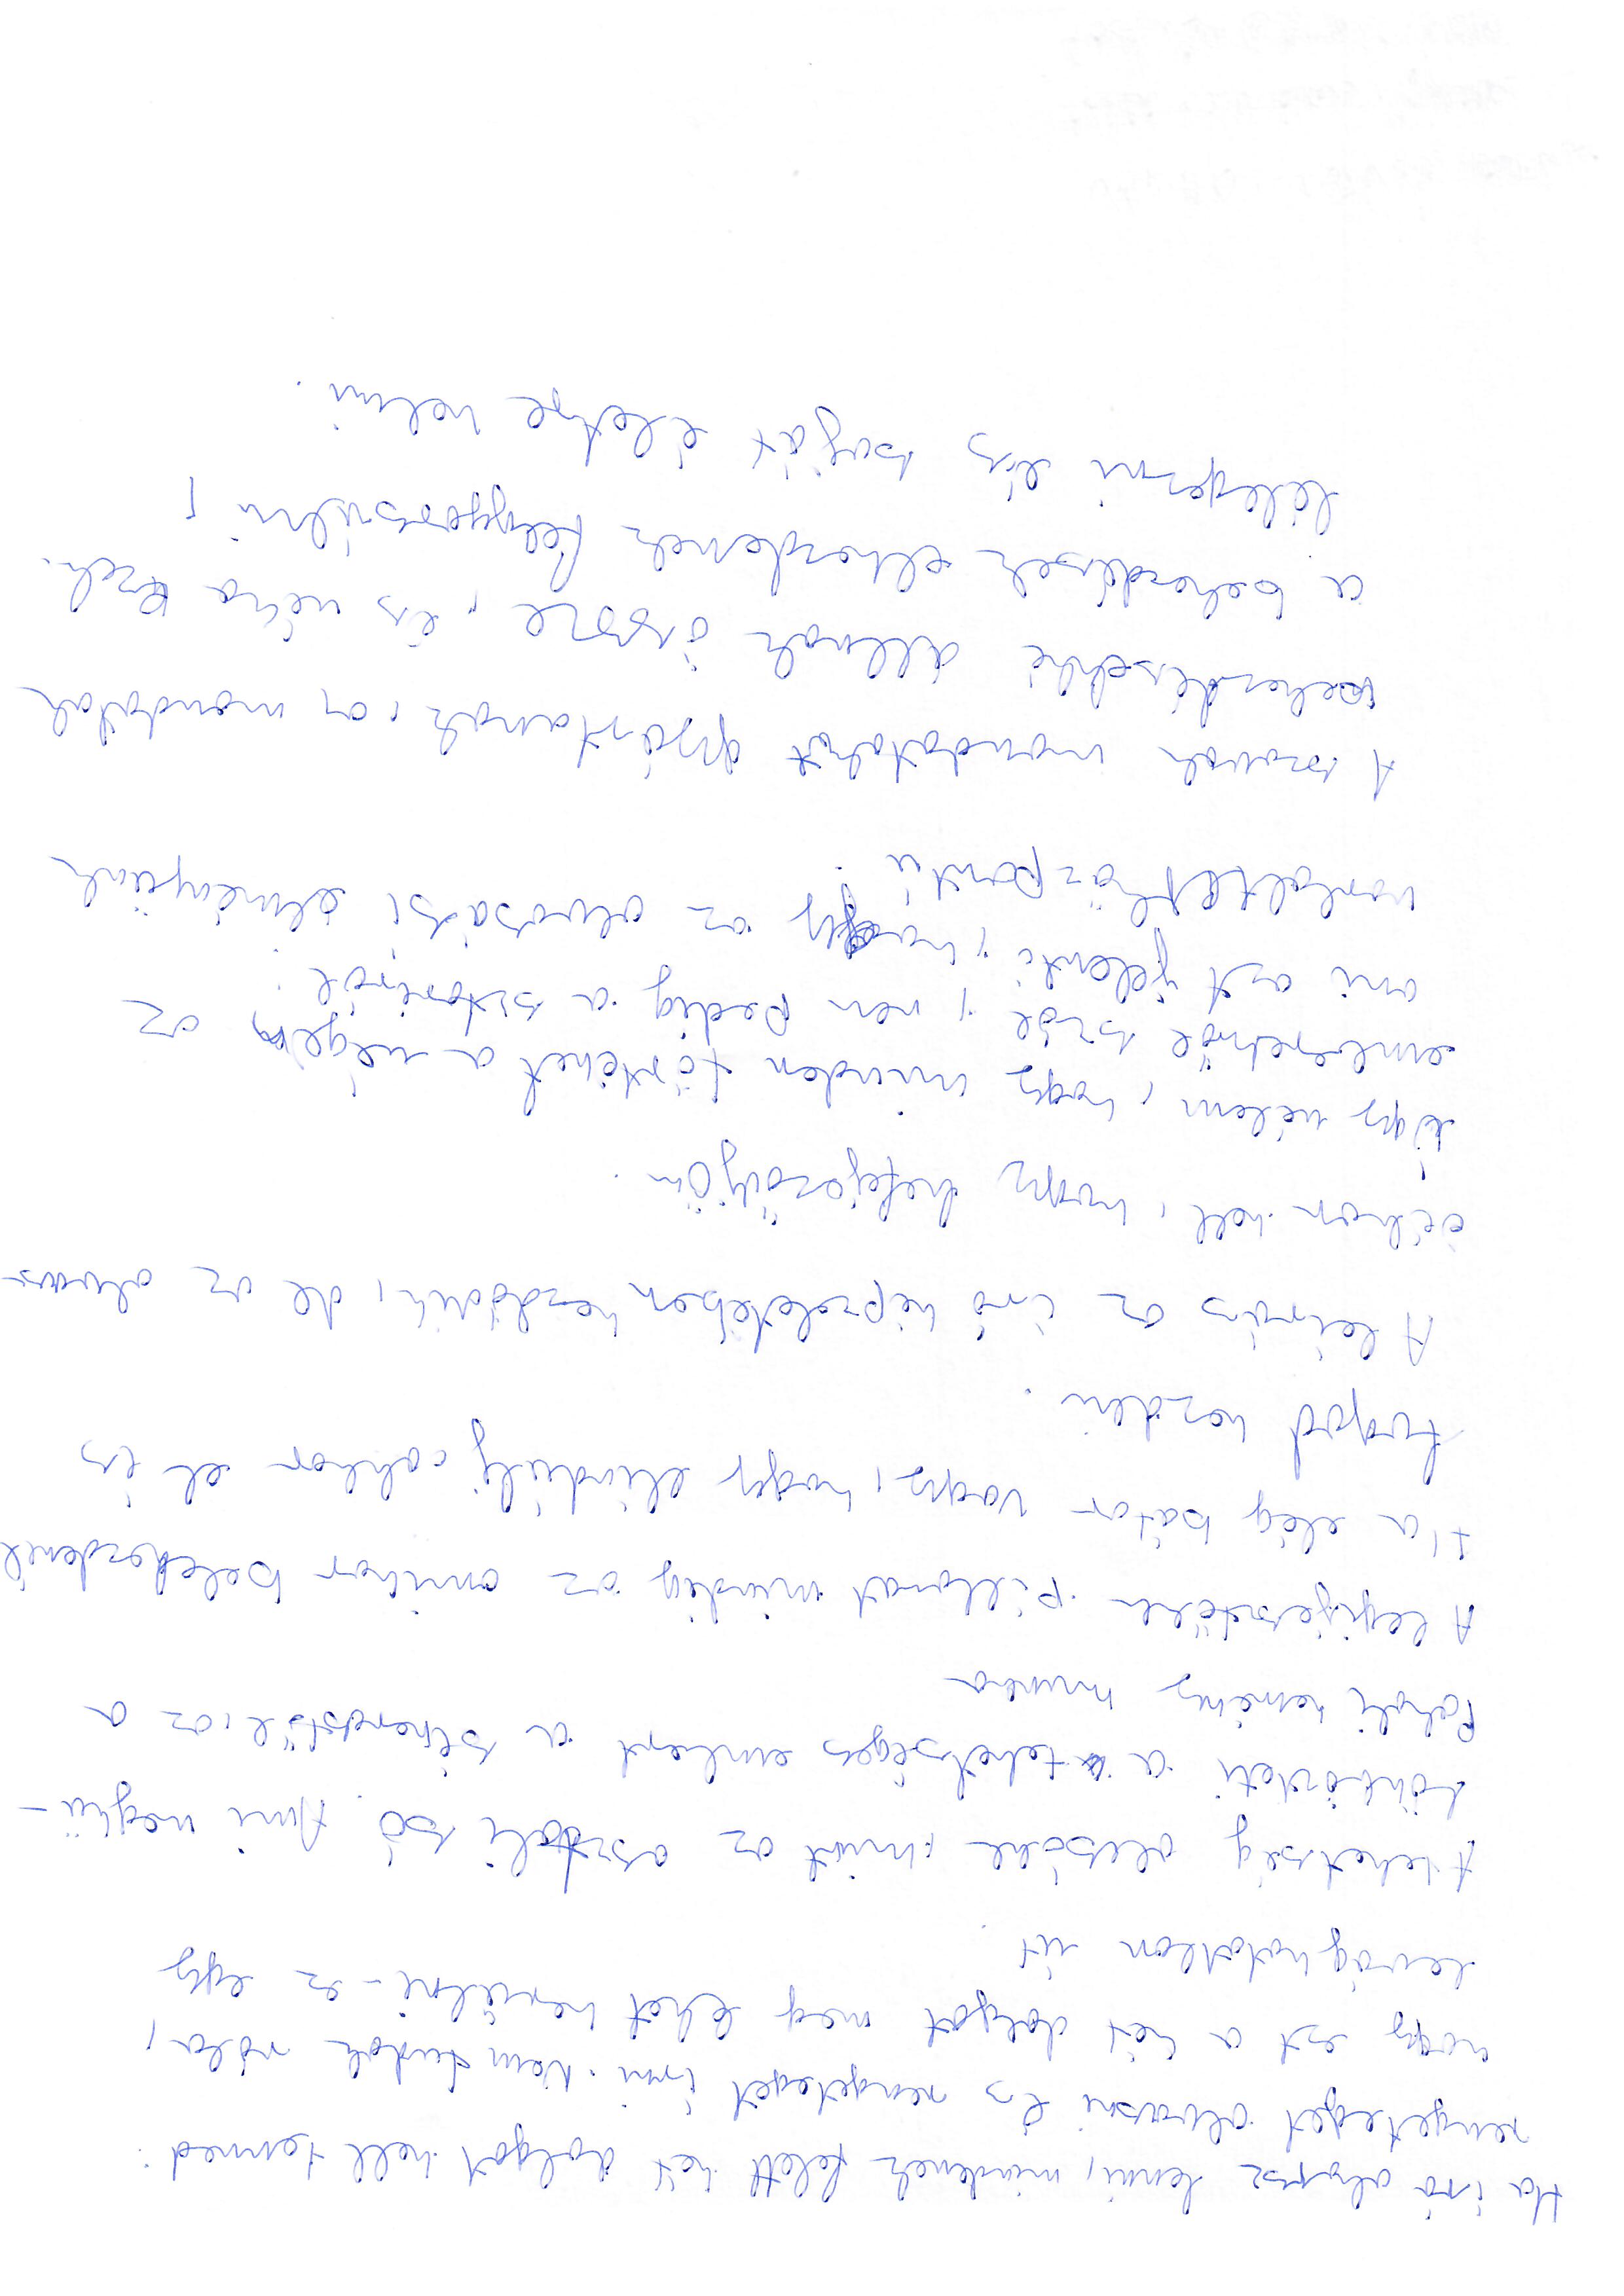 Ha író akarsz lenni, mindenek felett két dolgot kell tenned:
rengeteget olvasni és rengeteget írni. Nem tudok róla,
hogy ezt a két dolgot meg lehet kerülni - ez egy
levághatatlan út.
A tehetség olcsóbb, mint az asztali só. Ami megkü-
lönbözteti a tehetséges embert a sikerestől, az a
Pokoli kemény munka
A legijesztőbb pillanat mindig az amikor belekezdenél
Ha elég bátor vagy, hogy elindúlj, akkor el és
fogod kezdeni.
A leírás az író képzeletében kezdődik, de az olvas
óéban kell, hogy befejeződjön.
Úgy vélem, hogy minden történet a végén az
emberekről szól, nem pedig a sztoriról.
ami azt jelenti, hogy az olvasási élményünk
karakterközpontú.
A szavak mondatokat gyártanak, a mondatok
bekezdésekké állnak össze, és néha ezek
a bekezdések elkezdenek felgyorsúlni,
lélegezni és saját életre kelni.